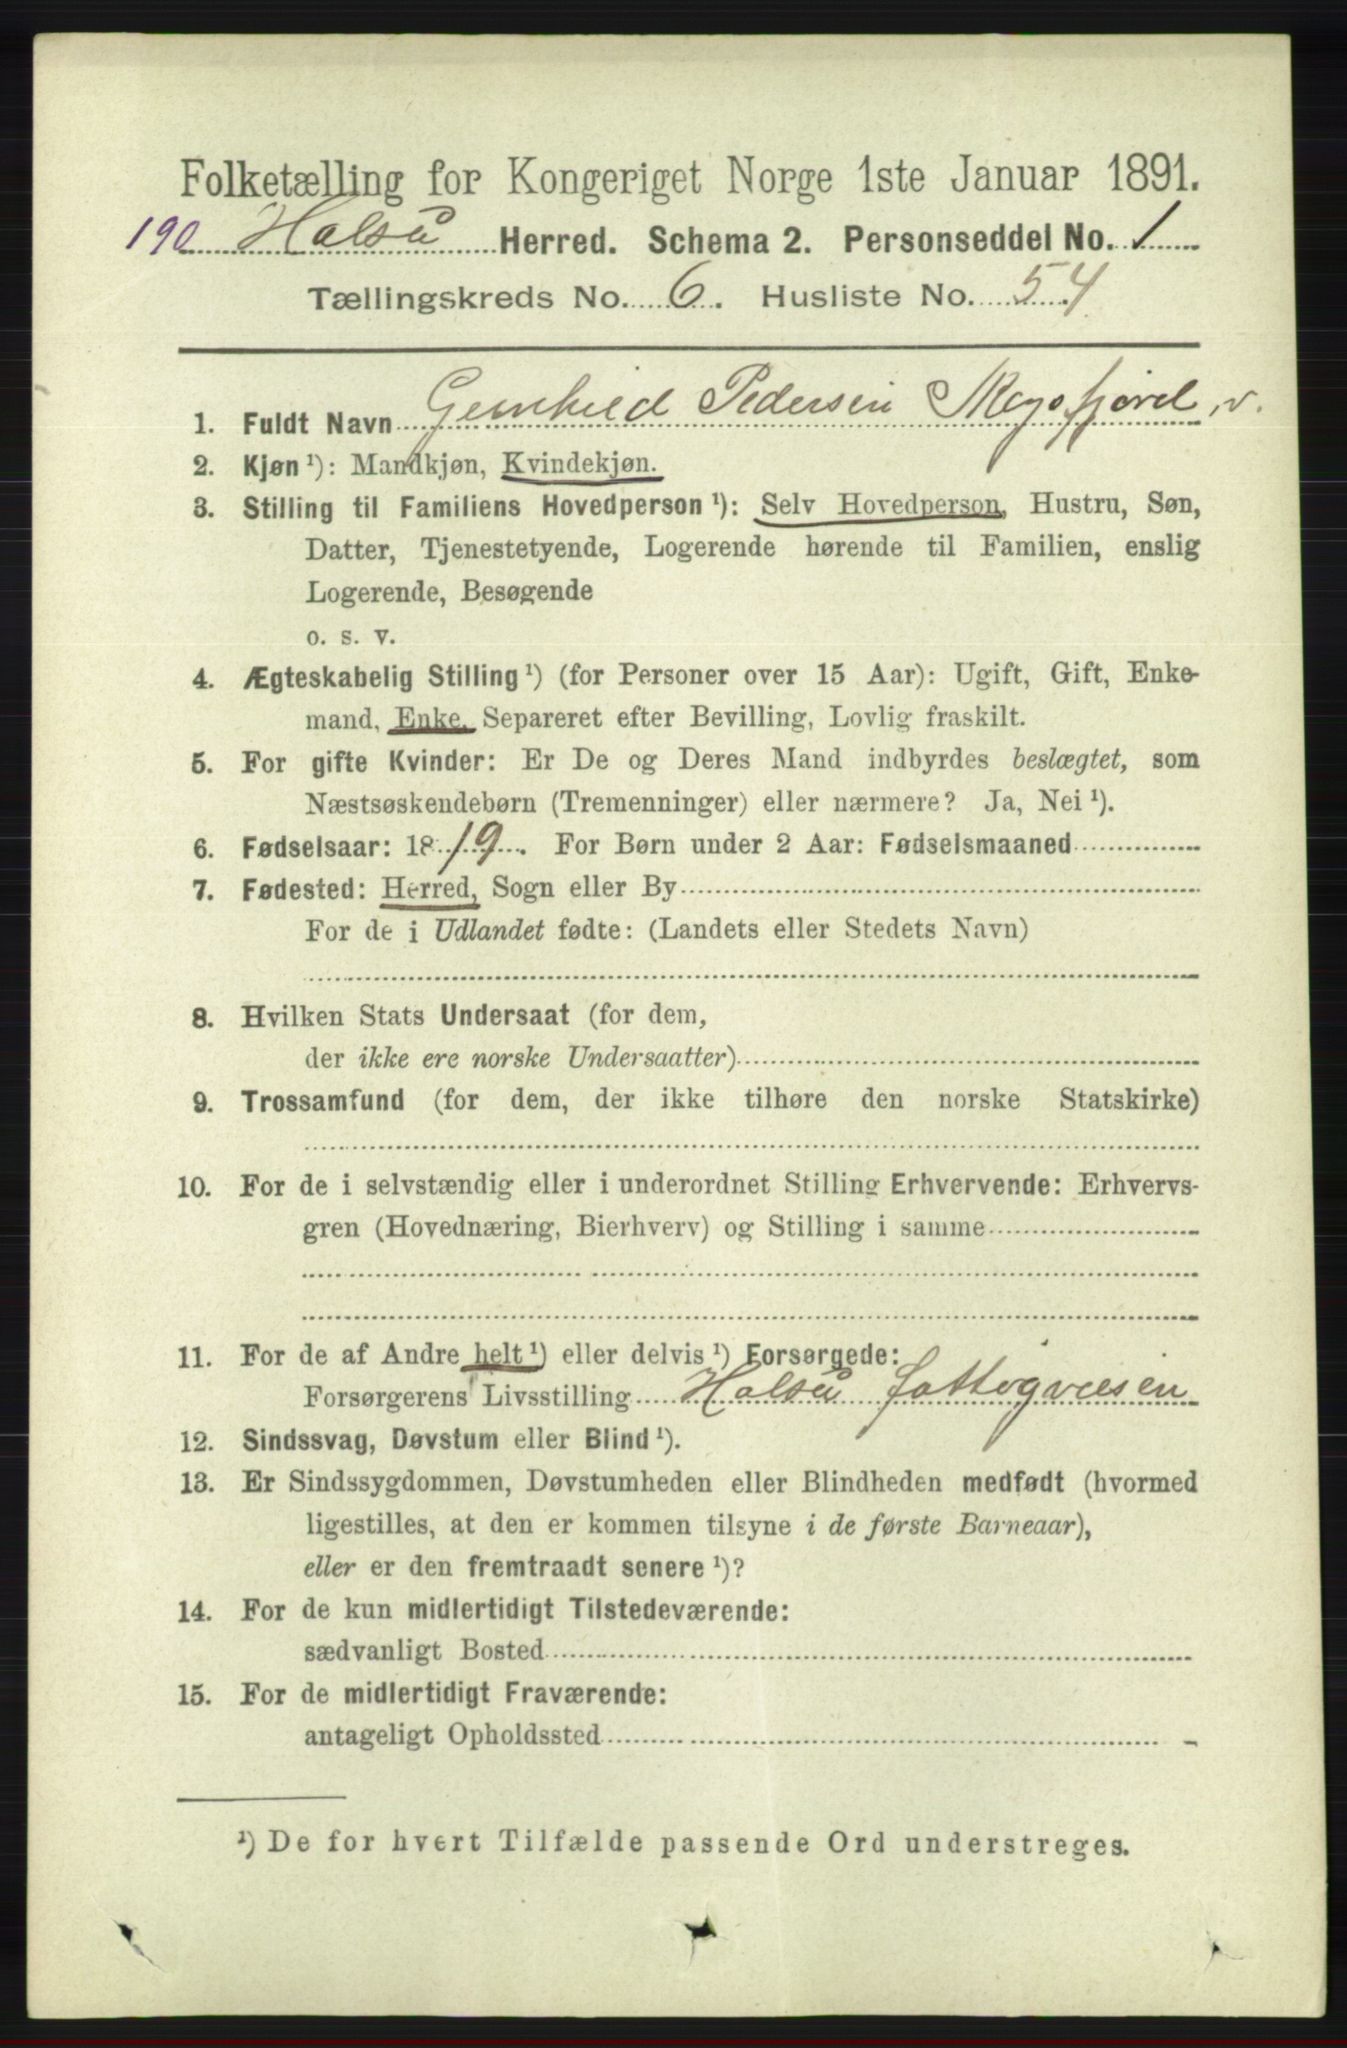 Folketælling for Kongeriget Norge 1ste Januar 1891.
190 Halså Herred. Schema 2. Personseddel No. 1
Tællingskreds No. 6. Husliste No. 54
1. Fuldt Navn Gunhild Pedersen Skogsfjord, v.
2. Kjøn ¹): Mandkjøn, Kvindekjøn.
3. Stilling til Familiens Hovedperson ¹): Selv Hovedperson, Hustru, Søn,
Datter, Tjenestetyende, Logerende hørende til Familien, enslig
Logerende, Besøgende
o. s. v.
4. Ægteskabelig Stilling ¹) (for Personer over 15 Aar): Ugift, Gift, Enke-
mand, Enke, Separeret efter Bevilling, Lovlig fraskilt.
5. For gifte Kvinder: Er De og Deres Mand indbyrdes beslægtet, som
Næstsøskendebørn (Tremenninger) eller nærmere? Ja, Nei ¹).
6. Fødselsaar: 1819. For Børn under 2 Aar: Fødselsmaaned
7. Fødested: Herred, Sogn eller By
For de i Udlandet fødte: (Landets eller Stedets Navn)
8. Hvilken Stats Undersaat (for dem,
der ikke ere norske Undersaatter)
9. Trossamfund (for dem, der ikke tilhøre den norske Statskirke)
10. For de i selvstændig eller i underordnet Stilling Erhvervende: Erhvervs-
gren (Hovednæring, Bierhverv) og Stilling i samme
11. For de af Andre helt ¹) eller delvis ¹) Forsørgede:
Forsørgerens Livsstilling Halså fattigvæsen
12. Sindssvag, Døvstum eller Blind ¹).
13. Er Sindssygdommen, Døvstumheden eller Blindheden medfødt (hvormed
ligestilles, at den er kommen tilsyne i de første Barneaar),
eller er den fremtraadt senere ¹)?
14. For de kun midlertidigt Tilstedeværende:
sædvanligt Bosted
15. For de midlertidigt Fraværende:
antageligt Opholdssted
¹) De for hvert Tilfælde passende Ord understreges.